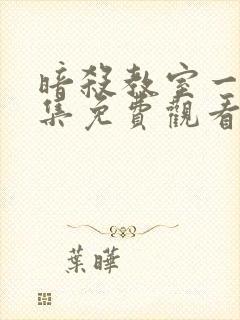 暗殺教室一
集免費觀看
葉曄